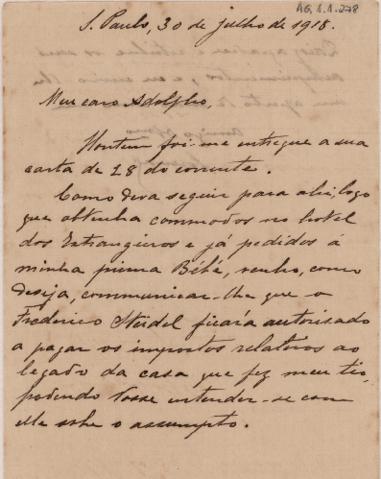 AG.1.1.278
S. Paulo, 30 de julho de 1918.
Meu caro Adolpho,
Hontem foi-me entregue a sua
carta de 28 do corrente.
Como deva seguir para ahi, logo
que obtenha commodos no hotel
dos Estrangeiros e já pedidos á
minha prima Bébé, venho, como
deseja, communicar-lhe que o
Frederico Steidel ficará autorisado
a pagar os impostos relativos ao
legado da casa que fez meu tio,
podendo Vosse entender-se com
elle sobre o assumpto.